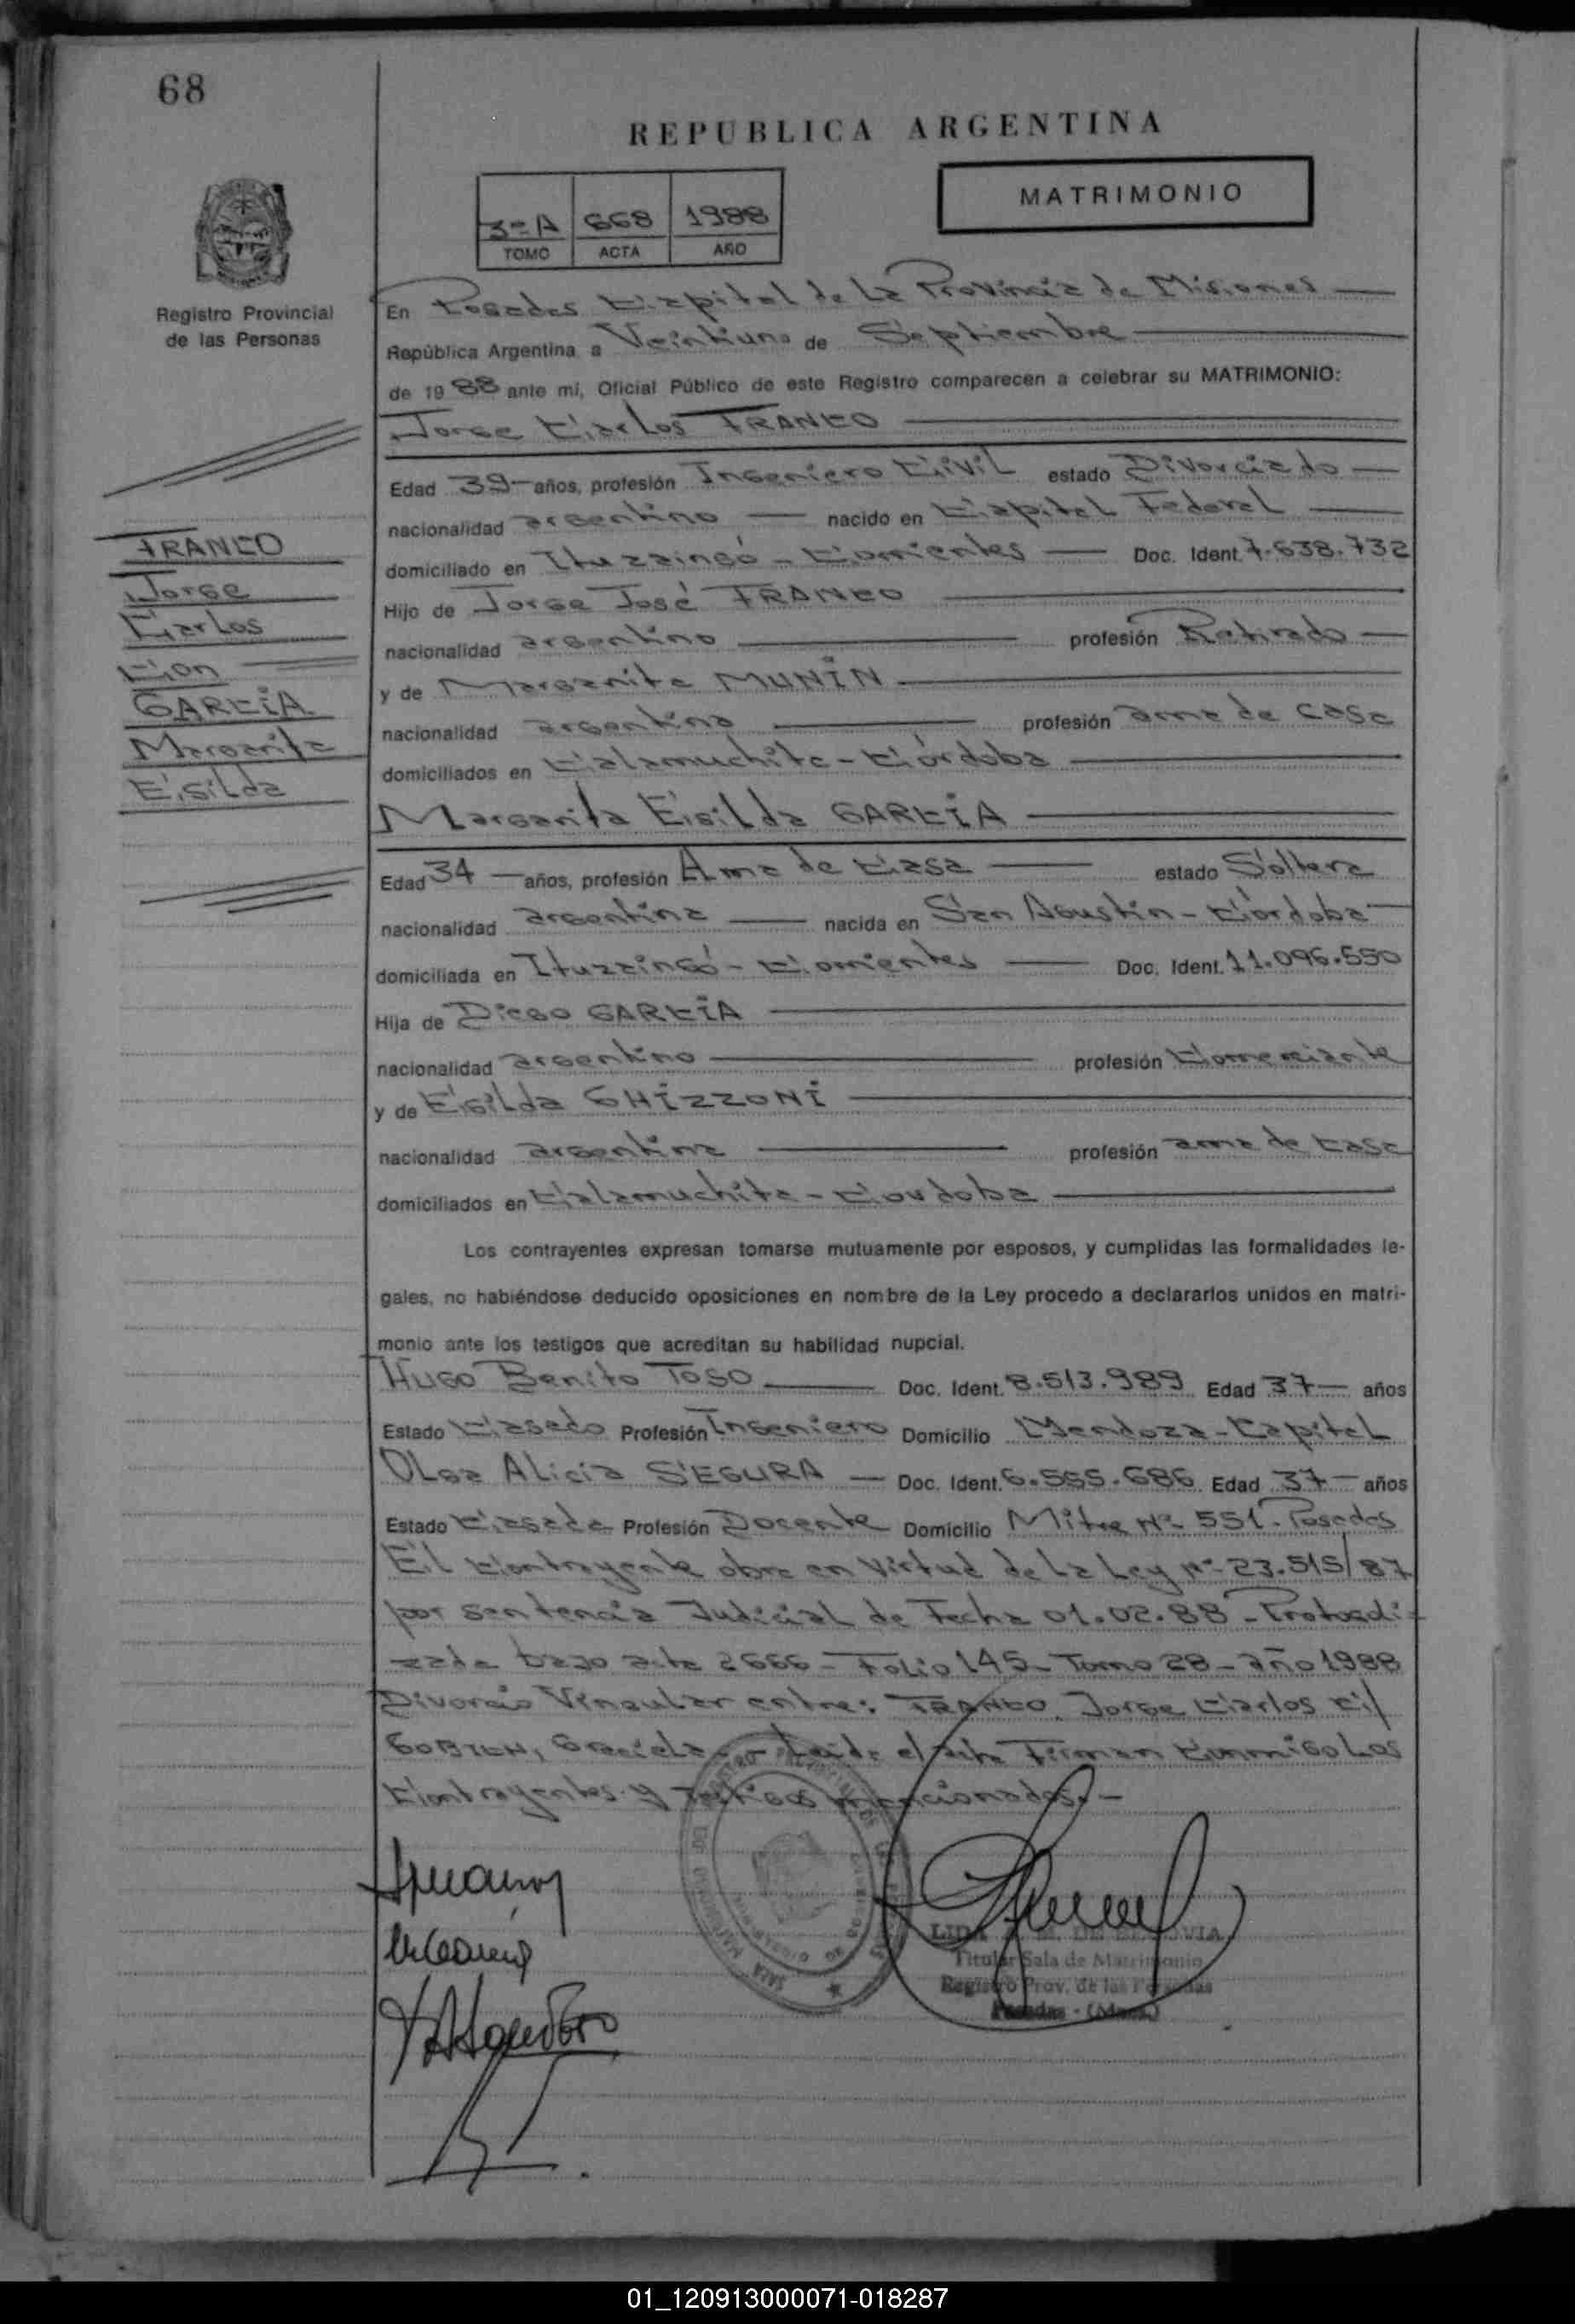 68
REPUBLICA ARGENTINA
MATRIMONIO
3º A 668 1988
TOMO ACTA AÑO
Registro Provincial
de las Personas
En Posadas Capital de La Provincia de Misiones
República Argentina a Veintiuno de Septiembre
de 1988 ante mí, Oficial Público de este Registro comparecen a celebrar su MATRIMONIO:
Jorge Carlos FRANCO
Edad 39 años, profesión Ingeniero Civil estado Divorciado
nacionalidad argentino nacido en Capital Federal
domiciliado en Ituzaingó - Corrientes Doc. Ident. 7.638.732
Hijo de Jorge José FRANCO
nacionalidad argentino profesión Retirado
y de Margarita MUNIN
nacionalidad argentina profesión ama de casa
domiciliados en Calamuchita - Córdoba
Margarita Elsilda GARCÍA
Edad 34 años, profesión Ama de Casa estado Soltera
nacionalidad argentina nacida en San Agustín - Córdoba
domiciliada en Ituzaingó - Corrientes Doc. Ident. 11.096.550
Hija de Diego GARCÍA
nacionalidad argentino profesión Comerciante
y de Elsilda GHIZZONI
nacionalidad argentina profesión ama de casa
domiciliados en Calamuchita - Cordoba
Los contrayentes expresan tomarse mutuamente por esposos, y cumplidas las formalidades le-
gales, no habiéndose deducido oposiciones en nombre de la Ley procedo a declararlos unidos en matri-
monio ante los testigos que acreditan su habilidad nupcial.
Hugo Benito TOSO Doc. Ident. 8.513.989 Edad 37 años
Estado Casado Profesión Ingeniero Domicilio Mendoza - Capital
Olga Alicia SEGURA Doc. Ident. 6.555.686 Edad 37 años
Estado Casada Profesión Docente Domicilio Mitre Nº 551 - Posadas
El Contrayente obra en Virtud de La Ley Nº 23.515/87
por sentencia Judicial de Fecha 01.02.88 - Protocoli-
zada bajo acta 2666 - Folio 145 - Tomo 28 - año 1988
Divorcio Vincular entre: FRANCO, Jorge Carlos c/
Graciela - Leída el acta Firman Conmigo Los
Contrayentes y Testigos mencionados. -
FRANCO
Jorge
Carlos
Con
GARCÍA
Margarita
Elsilda
Titular Sala de Matrimonio
Registro Prov. de las Personas
Posadas - (Mnes.)
01_120913000071-018287